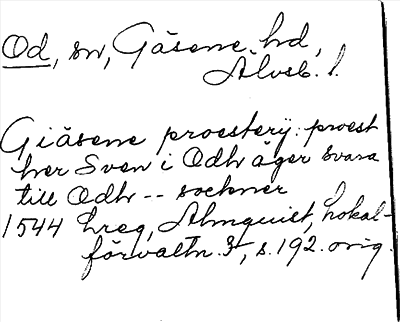 Od, sn, Gäsene hd,
Älvsb. l.
Giäsene proesterij: proest
her Sven i Odh äger svara
till Odh -- sockner
1544 hreg, Almquist, Lokal-
förvaltn. 3, s. 192. orig.